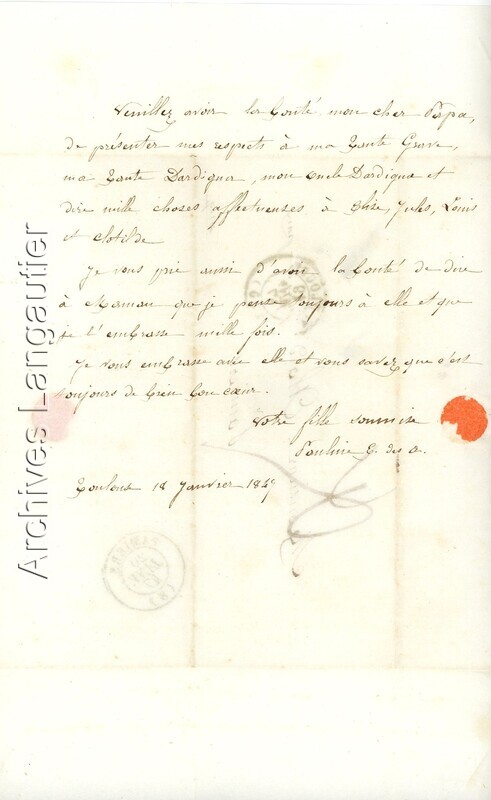 Veuillez avoir la bonté, mon cher Papa,
de présenter mes respects à ma tante Grave,
ma tante Dardigna, mon oncle Dardigna et
dire mille choses affectueuses à Elise, Jules, Louis
et Clotilde
Je vous prie aussi d'avoir la bonté de dire
à Maman que je pense toujours à elle et que
je l'embrasse mille fois.
Je vous embrasse avec elle et vous savez que c'est
toujours de bien bon cœur.
Votre fille soumise
Pauline G. des A.
Toulouse 18 Janvier 1847
Archives Langautier